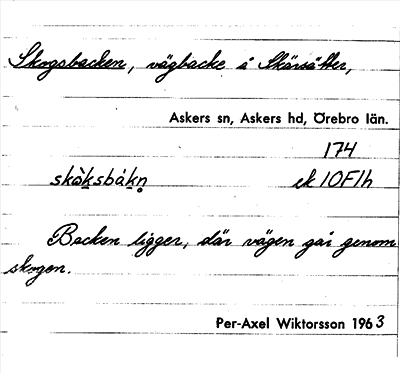 Skogsbacken, vägbacke å Skärsätter,
Askers sn, Askers hd, Örebro län.
174
skò̀ksbàkn̥ ek 10F1h
Backen ligger, där vägen går genom
skogen.
Per-Axel Wiktorsson 1963